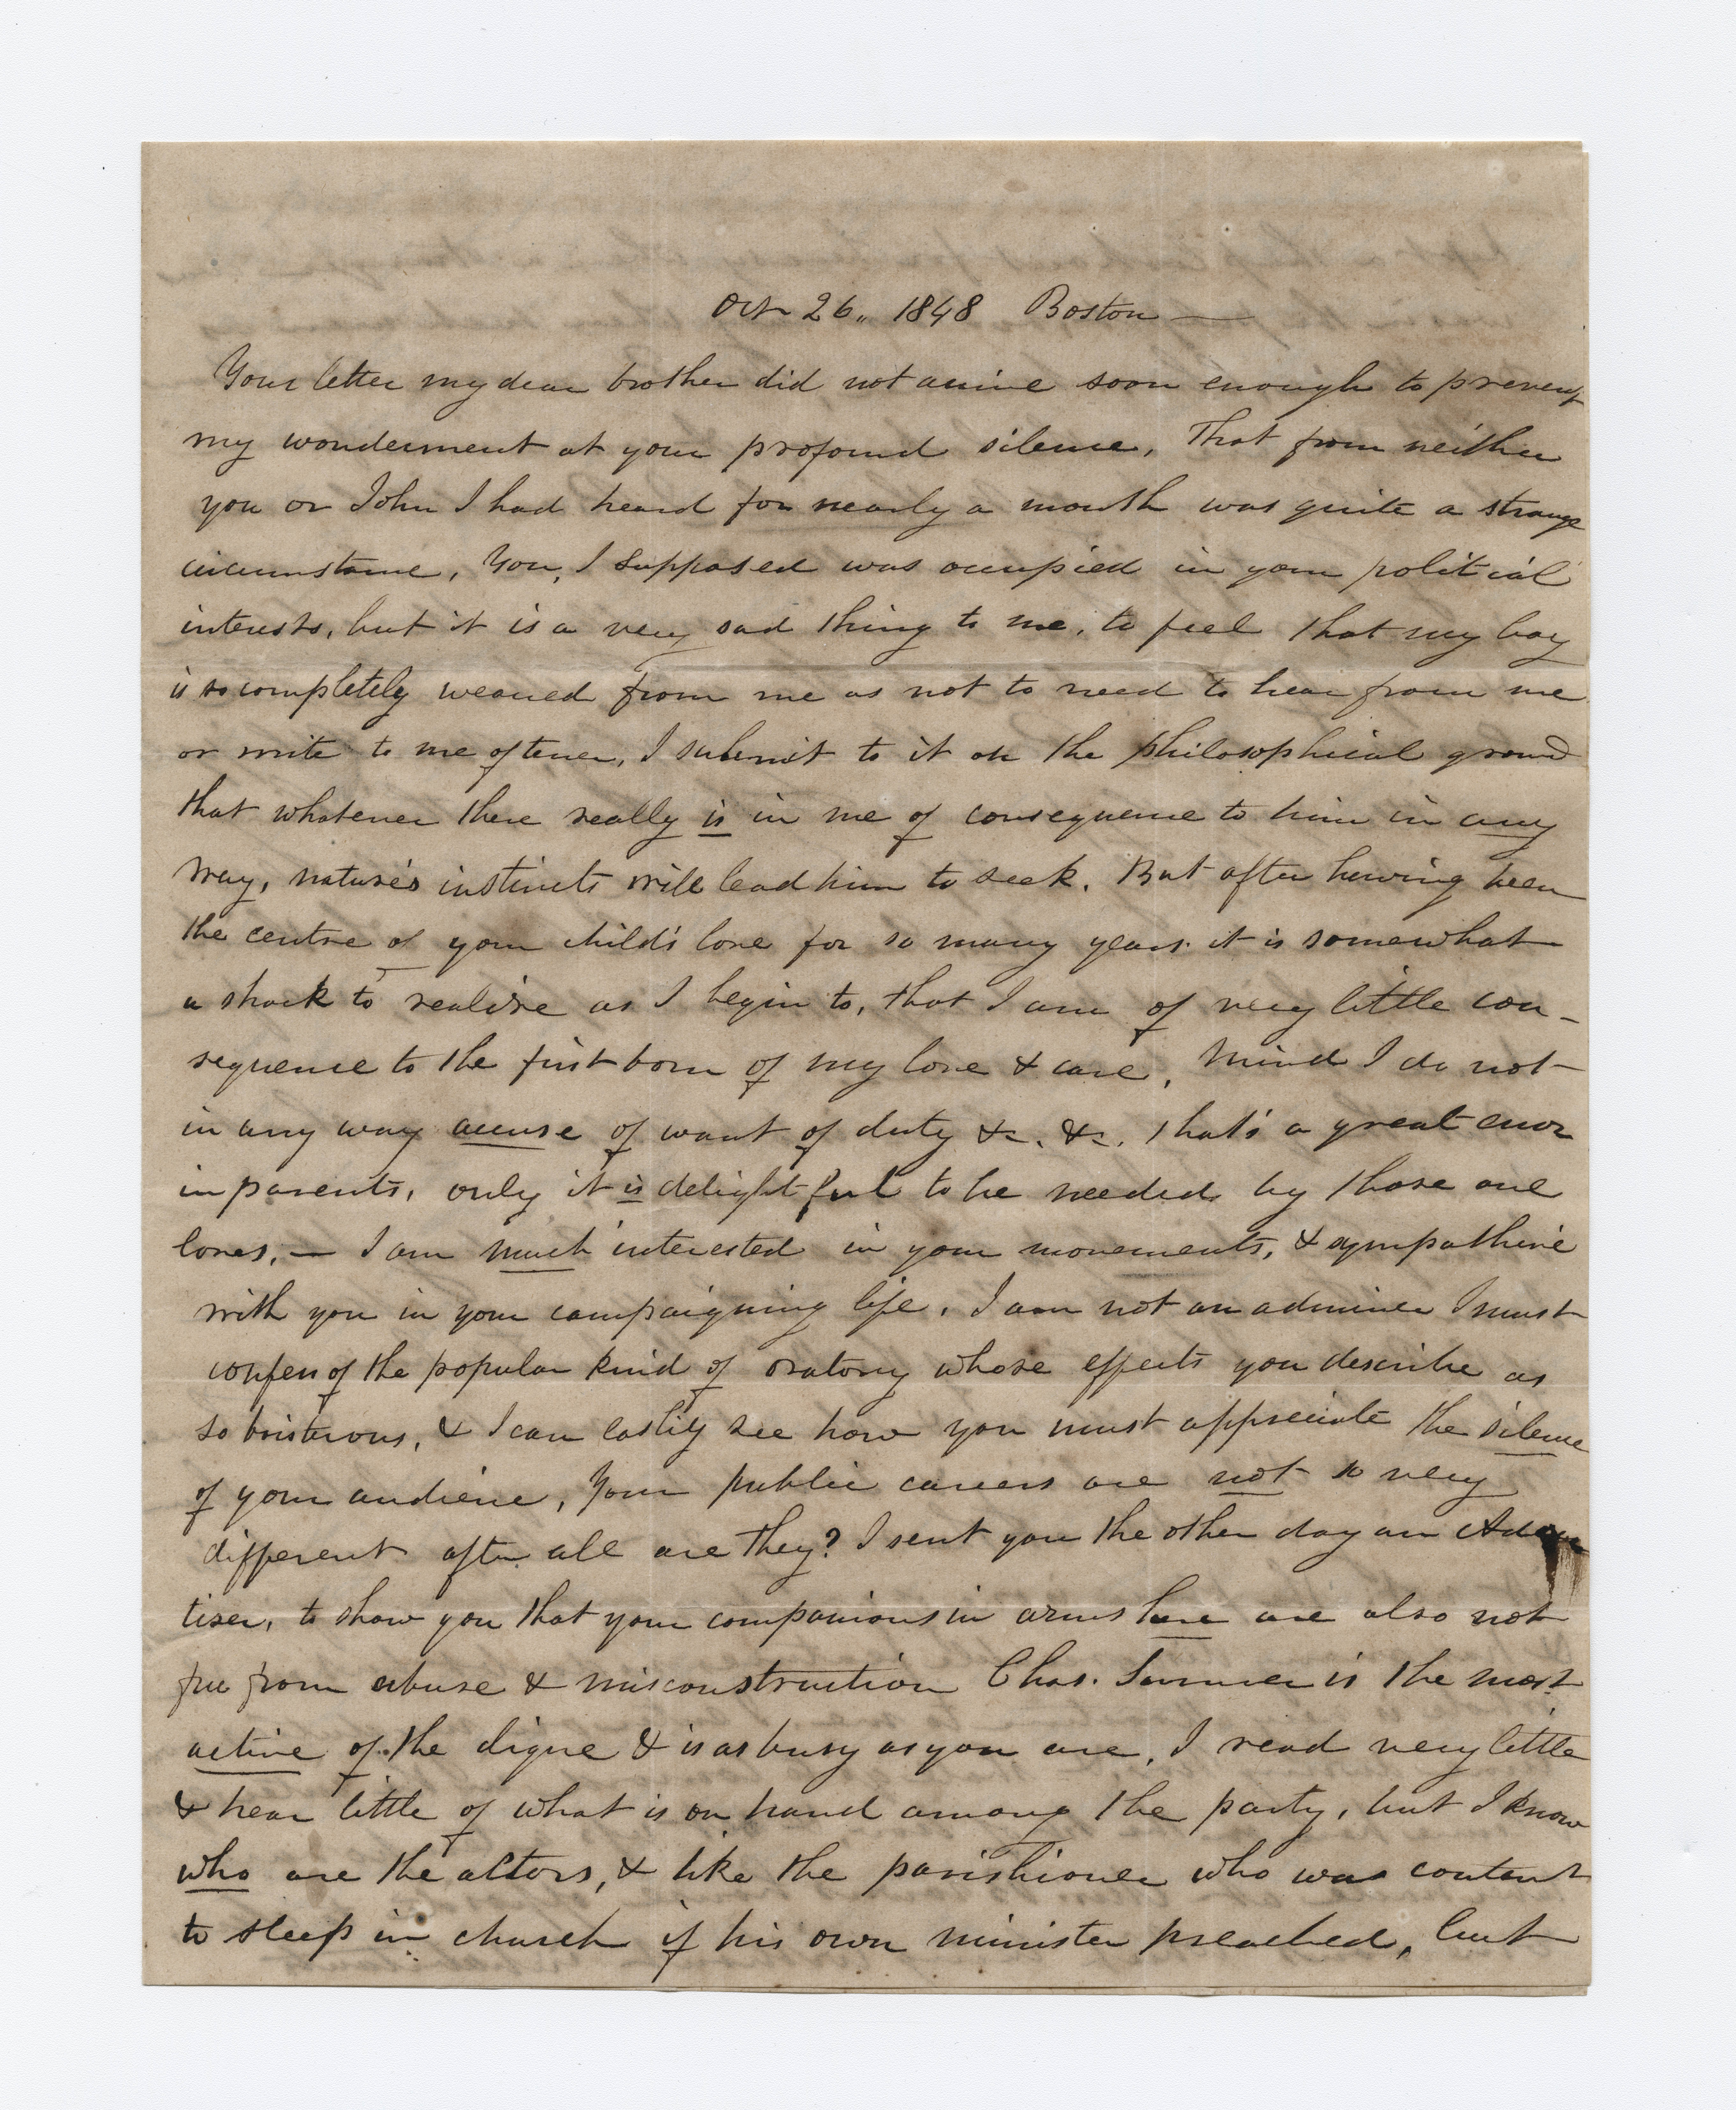 Oct 26, 1848 Boston —
Your letter my dear brother did not arrive soon enough to prevent
my wonderment at your profound silence, That from neither
you or John I had heard for nearly a month was quite a strange
circumstance, You, I supposed was occupied in your political
interests, but it is a very sad thing to me, to feel that my boy
is so completely weaned from me as not to need to hear from me
or write to me oftener, I submit to it on the philosophical ground
that whatever there really is in me of consequence to him in any
way, nature's instincts will lead him to seek. But after having been
the centre of your child's love for so many years it is somewhat
a shock to realize as I begin to, that I am of very little con-
sequence to the first born of my love & care, Mind I do not
in any way accuse of want of duty &c. &c. that's a great error
in parents, only it is delightful to be needed by those one
loves, — I am much interested in your movements, & sympathise
with you in your campaigning life, I am not an admirer I must
confess of the popular kind of oratory whose effects you describe as
so boisterous, & I can easily see how you must appreciate the silence
of your audience, Your public careers are not so very
different after all are they? I sent you the other day an Adver
tiser, to show you that your companions in arms here are also not
free from abuse & misconstruction Chas. Sumner is the most
active of the clique & is as busy as you are, I read very little
& hear little of what is on hand among the party, but I know
who are the actors, & like the parishioner who was content
to sleep in church if his own minister preached, but